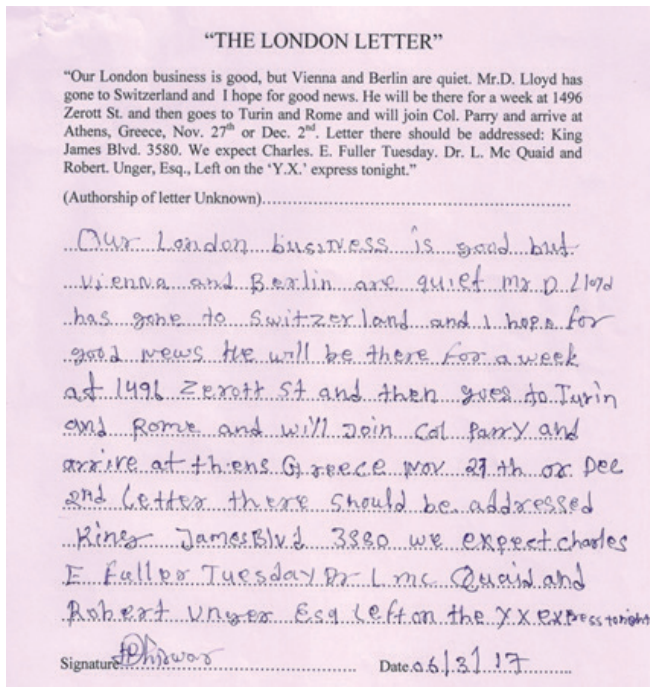 “THE LONDON LETTER”
“Our London business is good, but Vienna and Berlin are quiet. Mr.D. Lloyd has
gone to Switzerland and I hope for good news. He will be there for a week at 1496
Zerott St. and then goes to Turin and Rome and will join Col. Parry and arrive at
Athens, Greece, Nov. 27th or Dec. 2nd. Letter there should be addressed: King
James Blvd. 3580. We expect Charles. E. Fuller Tuesday. Dr. L. Mc Quaid and
Robert. Unger, Esq., Left on the ‘Y.X.’ express tonight.”
(Authorship of letter Unknown)
Our London business is good but
Vienna and Berlin are quiet Mr D Lloyd
has gone to Switzerland and I hope for
good news He will be there for a week
at 1496 Zerott St and then goes to Turin
and Rome and will Join Col Parry and
arrive at thens Greece Nov 27 th or Dec
2nd Letter there should be addressed
King James Blvd 3880 we expect charles
E Fuller Tuesday Dr L mc Quaid and
Robert Unger Esq Left on the XX express tonight
Signature
Date 06/3/17